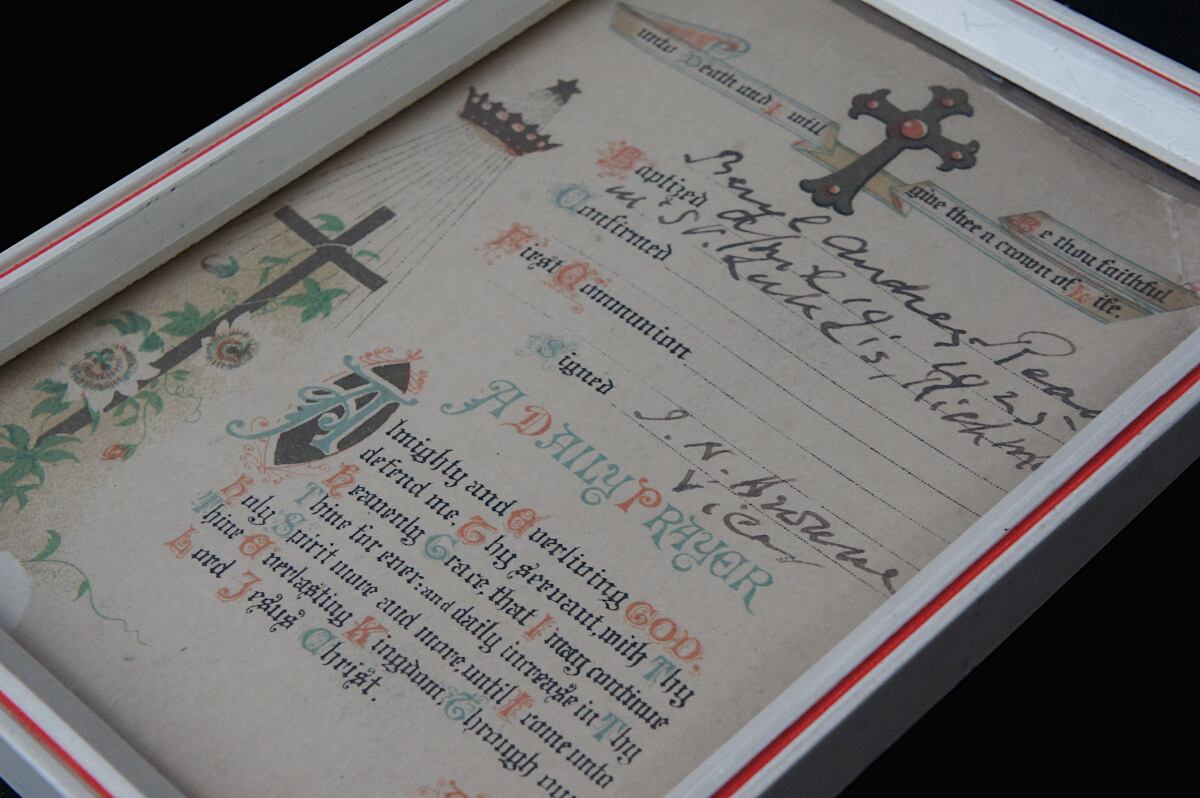 Be thou faithful
unto Death and I will give thee a crown of Life.
Baptized Beryl Audrey Read
April 19, 1925
Confirmed in St. Luke's,
First Communion
Signed
Vicar
A DAILY PRAYER
Almighty and Everliving GOD,
defend me, Thy servant, with Thy
heavenly Grace, that I may continue
Thine for ever: and daily increase in Thy
Holy Spirit more and more, until I come unto
Thine Everlasting Kingdom: Through
Lord Jesus Christ.